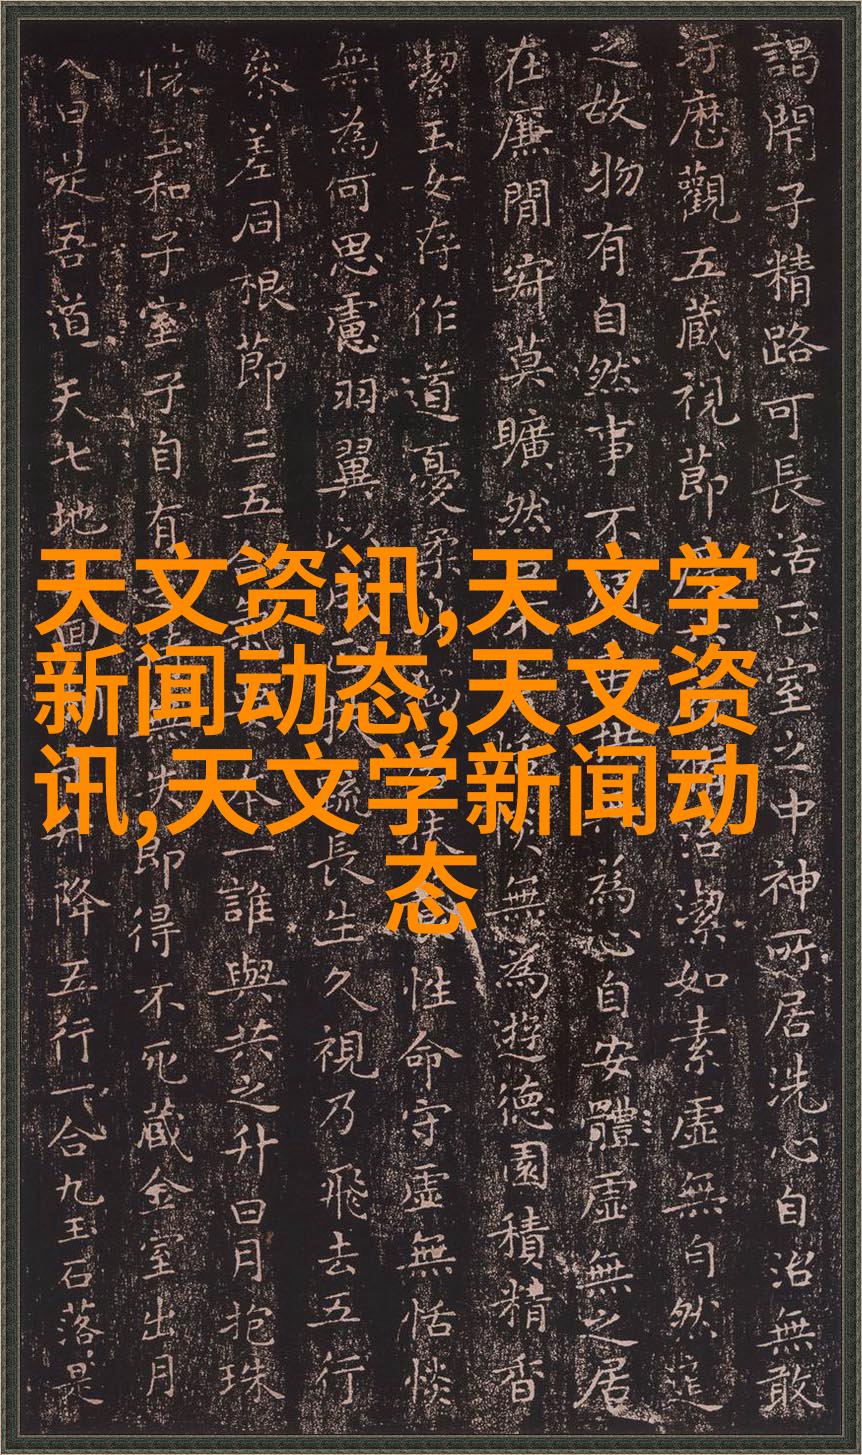 天文资讯,天文学
新闻动态,天文资
讯,天文学新闻动
态
謁閇子精路可長活正室之中神所居洗心自治無敢
汙歷觀五蔵視節潔如素虛無自然道
之故物有自然事不為心自安體虛無之居
在廉閒寂莫曠然無為遊德園積精香
潔玉女存作道憂柔性命守虛無恬惔
無為何思慮羽翼長生久視乃飛去五行
參差同根節三五一誰與共之升日月抱珠
懷玉和子室子自有失即得不死蔵金室出月
入日是吾道天七地升降五行一合九玉石落是